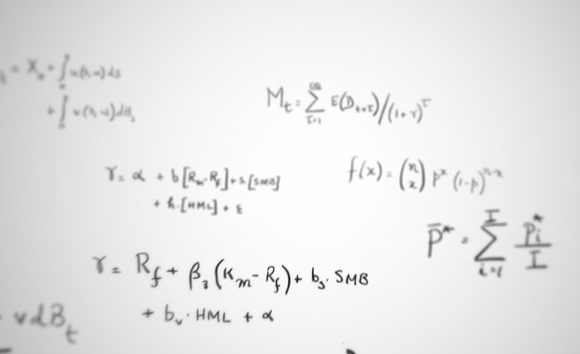 = X₀ + ∫₀ u(s,ω)ds
+ ∫₀ v(s,ω)dBₛ
Mₜ = ∑τ=1^∞ E(Dₜ₊τ)/(1+r)^τ
r = α + b[Rₘ-R_f]+s[SMB]
+ h·[HML] + ε
f(x) = (n x) pˣ (1-p)ⁿ⁻ˣ
p̄* = ∑i=1^I pᵢ*/I
r = R_f + β₃(Kₘ-R_f) + bₛ·SMB
+ bᵥ·HML + α
vdBₜ